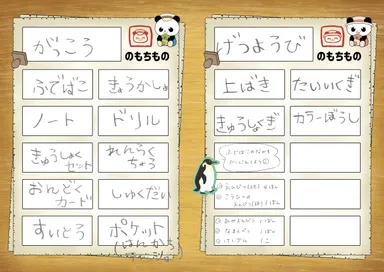 がっこう
のもちもの
ふでばこ
きょうかしょ
ノート
ドリル
きゅうしょく
セット
れんらく
ちょう
おんどく
カード
しゅくだい
すいとう
ポケット
(はんかち
げつようび
のもちもの
上ばき
たいいくぎ
きゅうしょくぎ
カラーぼうし
ふでばこのなかを
かくにんしよう